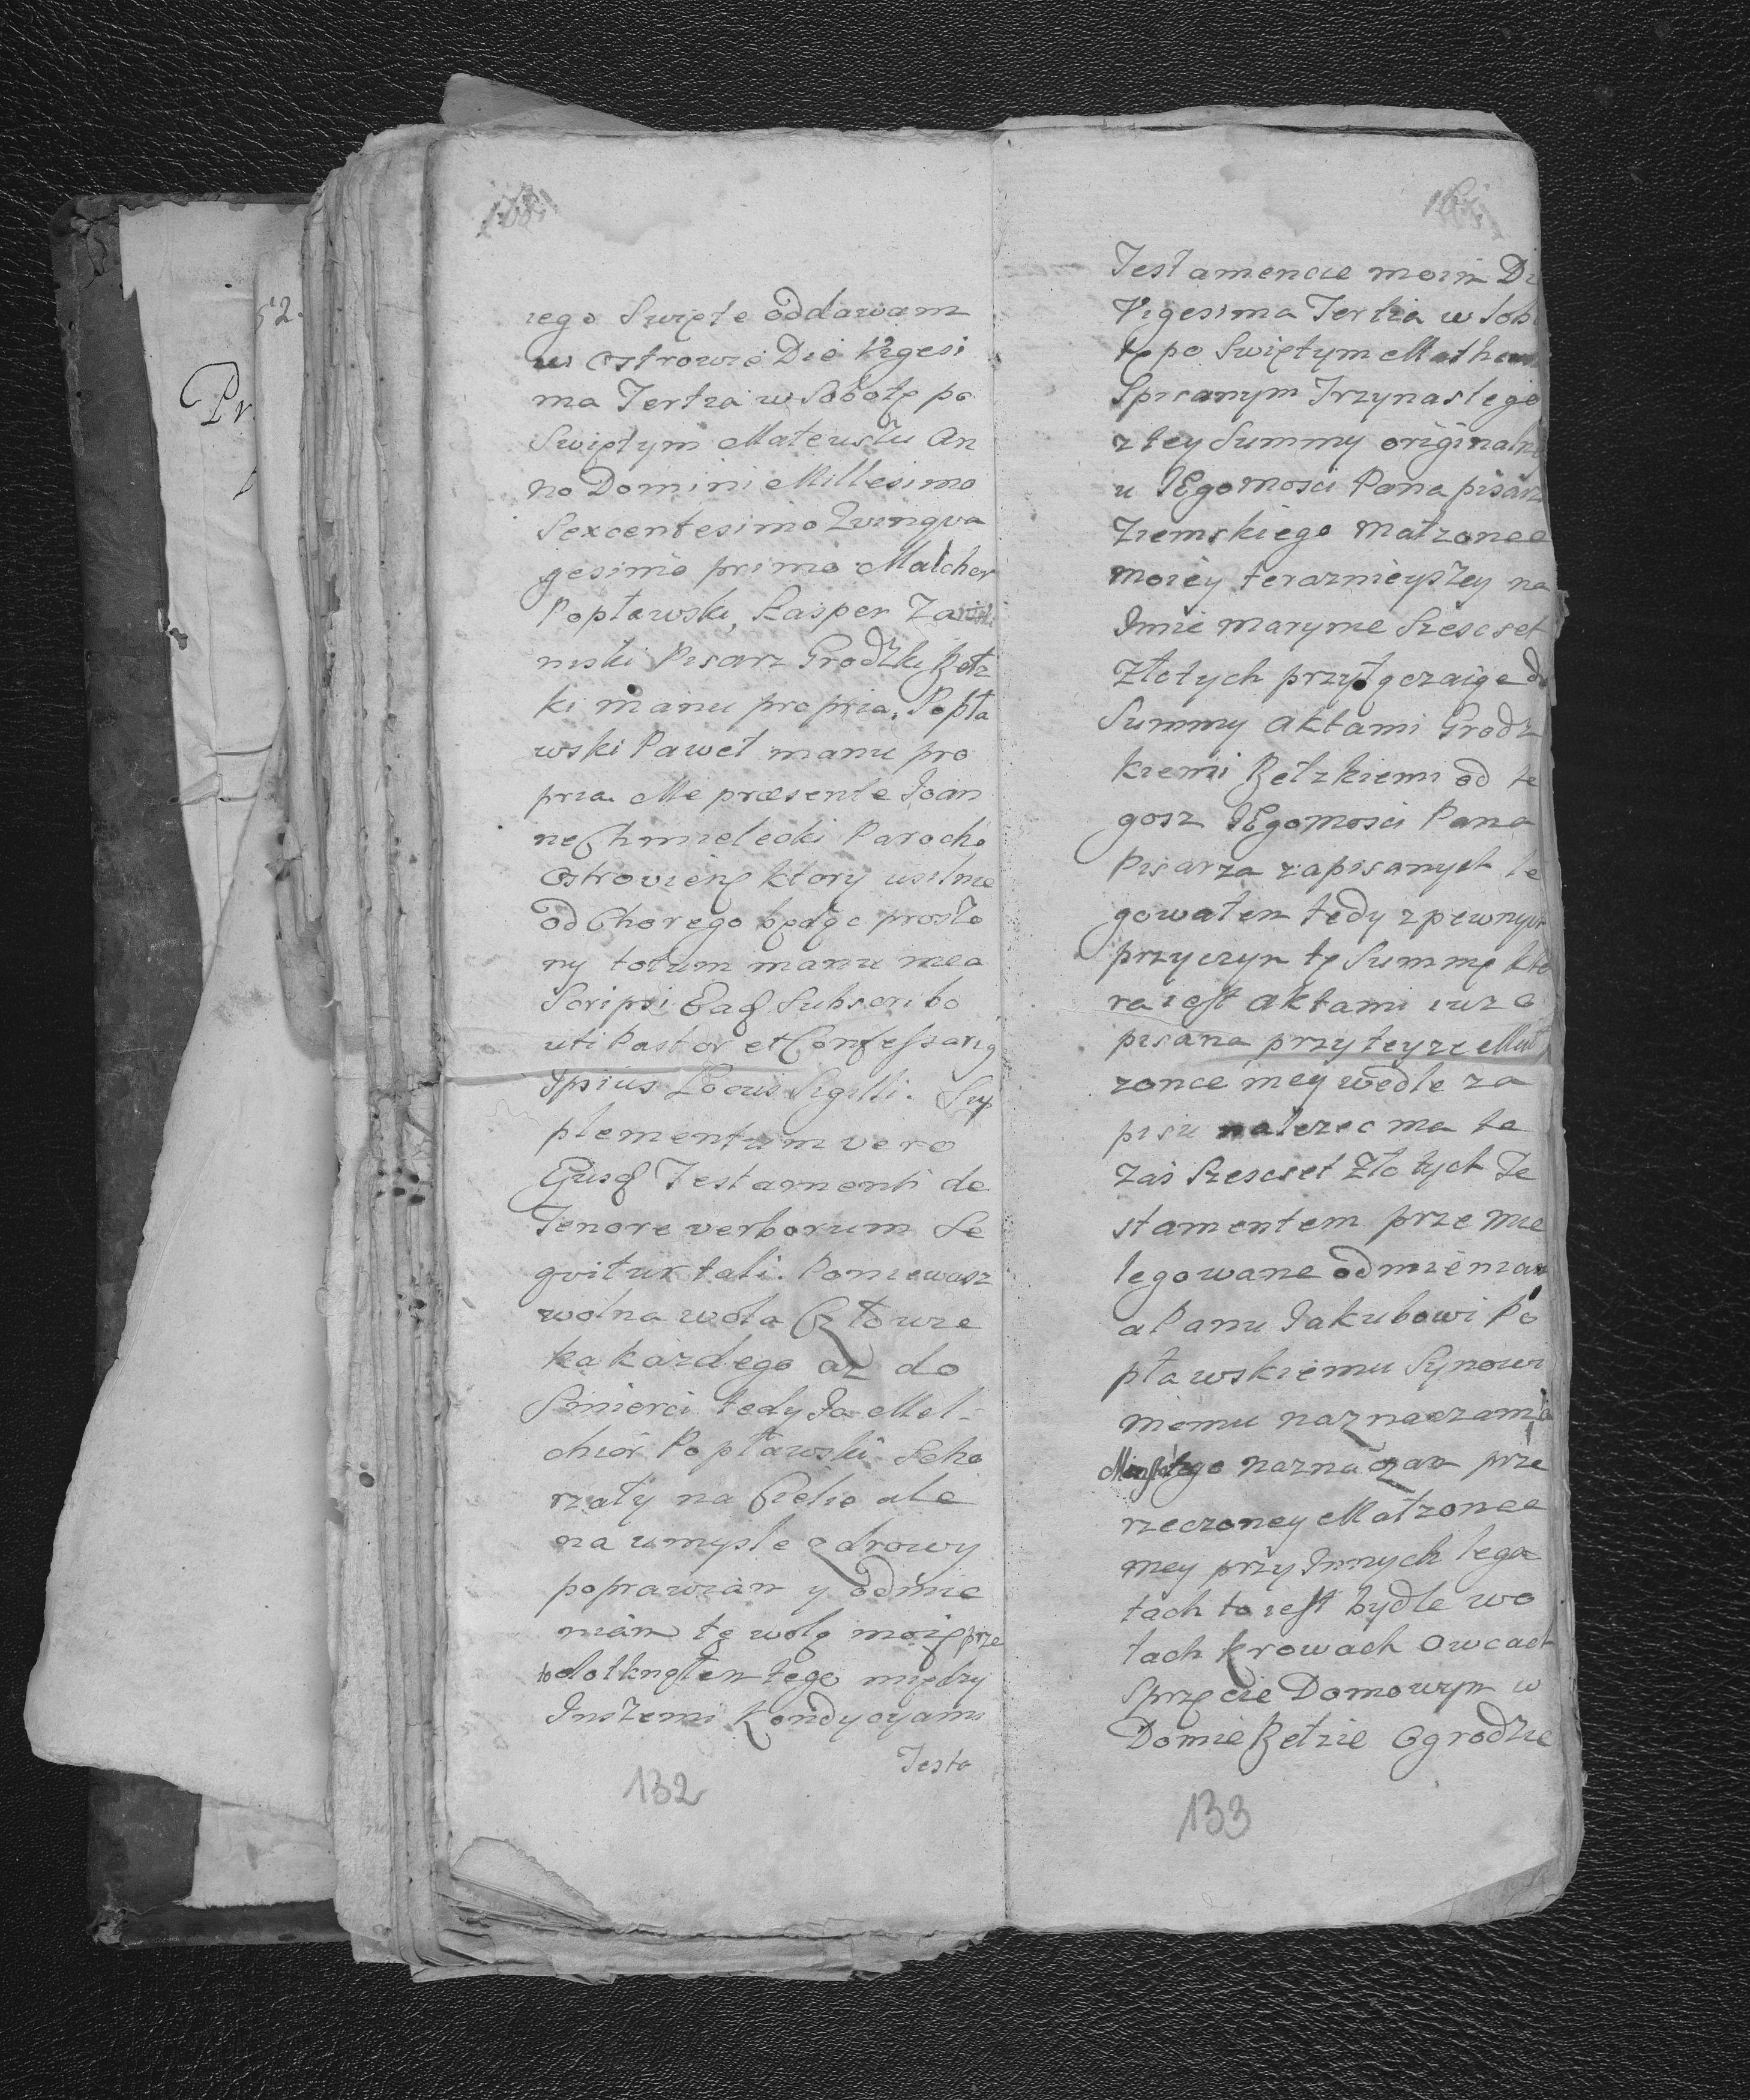 52.
Pr
iego Swięte oddawam
w Ostrowie Die Vigesi
ma Tertia w Sobotę po
Swiętym Mateuszu An
no Domini Millesimo
Sexcentesimo Quinqva
gesimo primo Malcher
Popławski, Kasper Za
nski Pisarz Grodzki Bełz
ki manu propria, Popła
wski Paweł manu pro
pria. Me præsente Joan
ne Chmielecki Parocho
Ostrovienę ktory usilnie
od Chorego będąc proszo
ny totum manu mea
Scripsi Eaq Subscribo
uti Pastor et Confessariq
Ipsius Locus Sigilli. Sup
plementum vero
Ejusq Testamenti de
Tenore verborum Se
qvitur tali. Poniewasz
wolna wola Człowie
ka kazdego az do
Smierci tedy Ja Mel-
chior Popławski Scho
rzały na Ciele ale
na umysle zdrowy
poprawiam y odmie
niam tę wolą moię prze
to dotknąłem tego między
Inszemi Kondycyami
Testa
132
Testamencie moim Di
Vigesima Tertia w Sobo
tę po Swiętym Mathe
Spisanym Trzynastego
z tey Summy originalne
u JEgomosci Pana pisarz
Ziemskiego Małzonce
moiey terazniejszey na
Imie Marynie Szescset
Złotych przyłączaiąc do
Summy Aktami Grodz
kiemi Bełzkiemi od te
gosz JEgomosci Pana
Pisarza zapisanych le
gowałem tedy z pewnych
przyczyn tę Summę kto
ra iest Aktami iuz o
pisana przy teyze Mał
zonce mey wedle za
pisu nalezec ma te
zas Szescset Złotych Te
stamentem prze mie
legowane odmieniam
a Panu Jakubowi Po
pławskiemu Synowi
memu naznaczam a
Miasto tego naznaczam prze
rzeczoney Małzonce
mey przy Innych lega
tach to iest bydle wo
łach krowach Owcach
Sprzęcie Domowym w
Domie Bełzie Ogrodzie
133